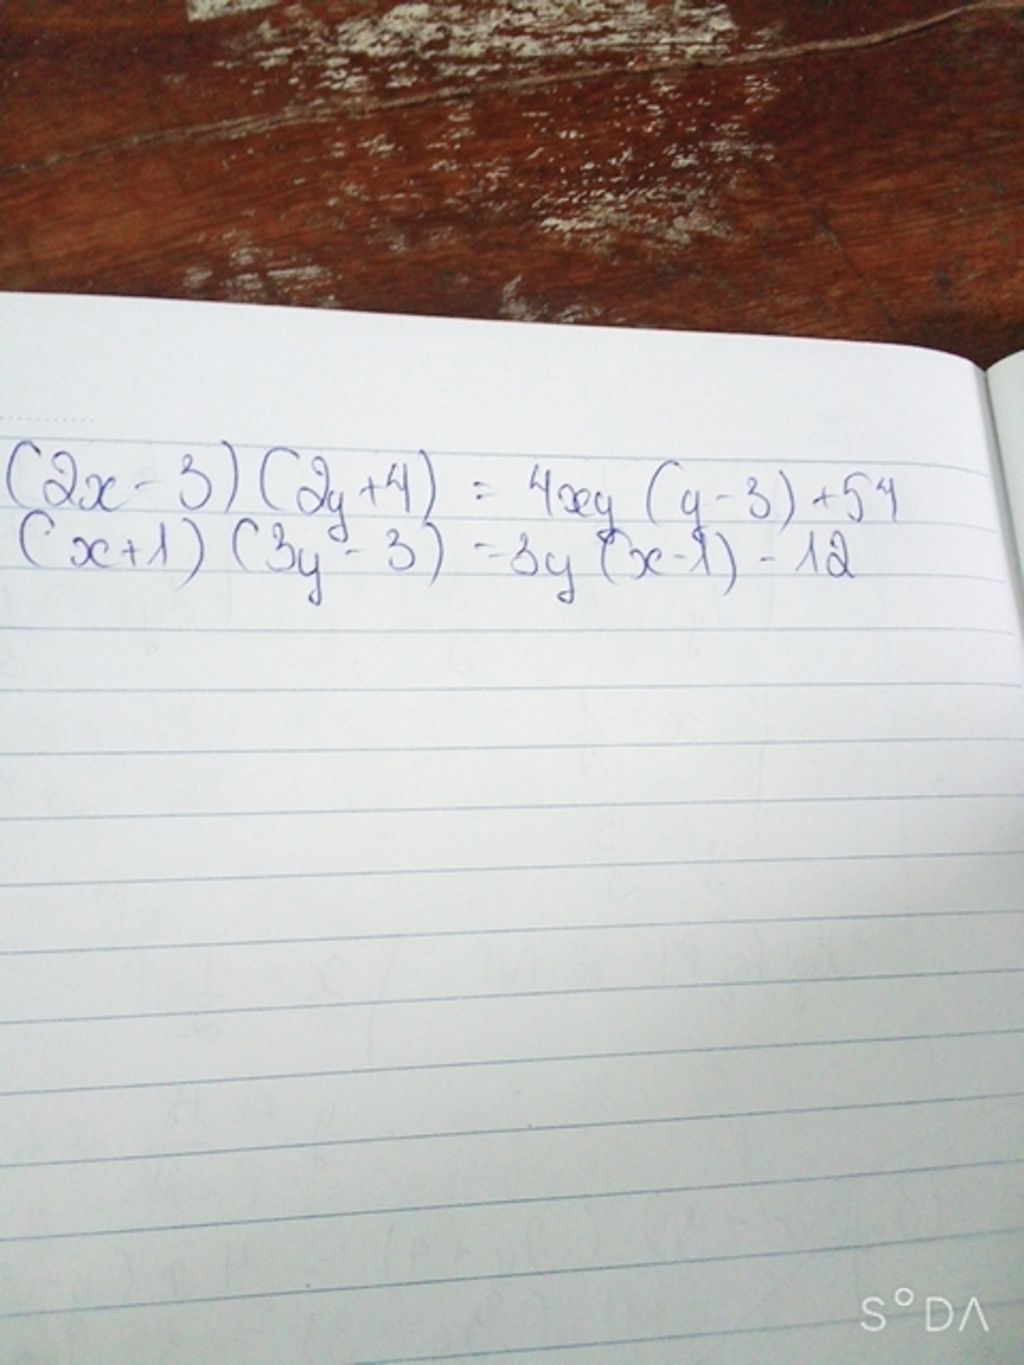 (2x - 3) (2y + 4) = 4xy (y - 3) + 54
(x + 1) (3y - 3) = 3y (x - 1) - 12
S°DA